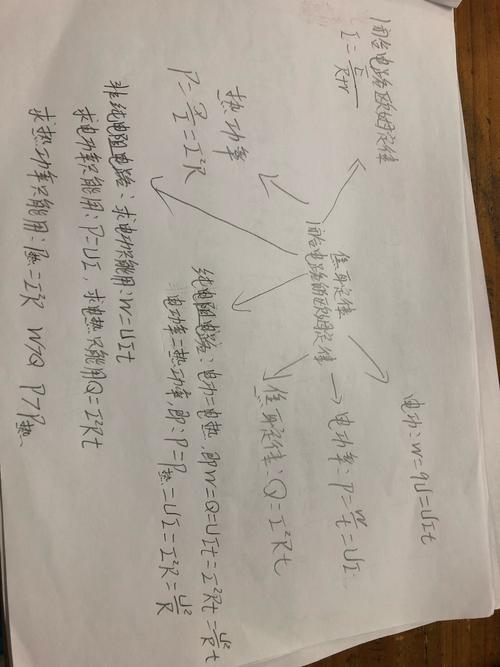 闭合电路欧姆定律
I=E/(R+r)
热功率
P=Q/t=I²R
焦耳定律
闭合电路的欧姆定律
电功:W=qU=UIt
→电功率:P=W/t=UI
焦耳定律:Q=I²Rt
纯电阻电路:电功=电热,即W=Q=UIt=I²Rt=U²/R t
电功率=热功率,即:P=P热=UI=I²R=U²/R
非纯电阻电路:求电功只能用:W=UIt
求电功率只能用:P=UI.求电热只能用Q=I²Rt
求热功率只能用:P热=I²R W>Q P>P热